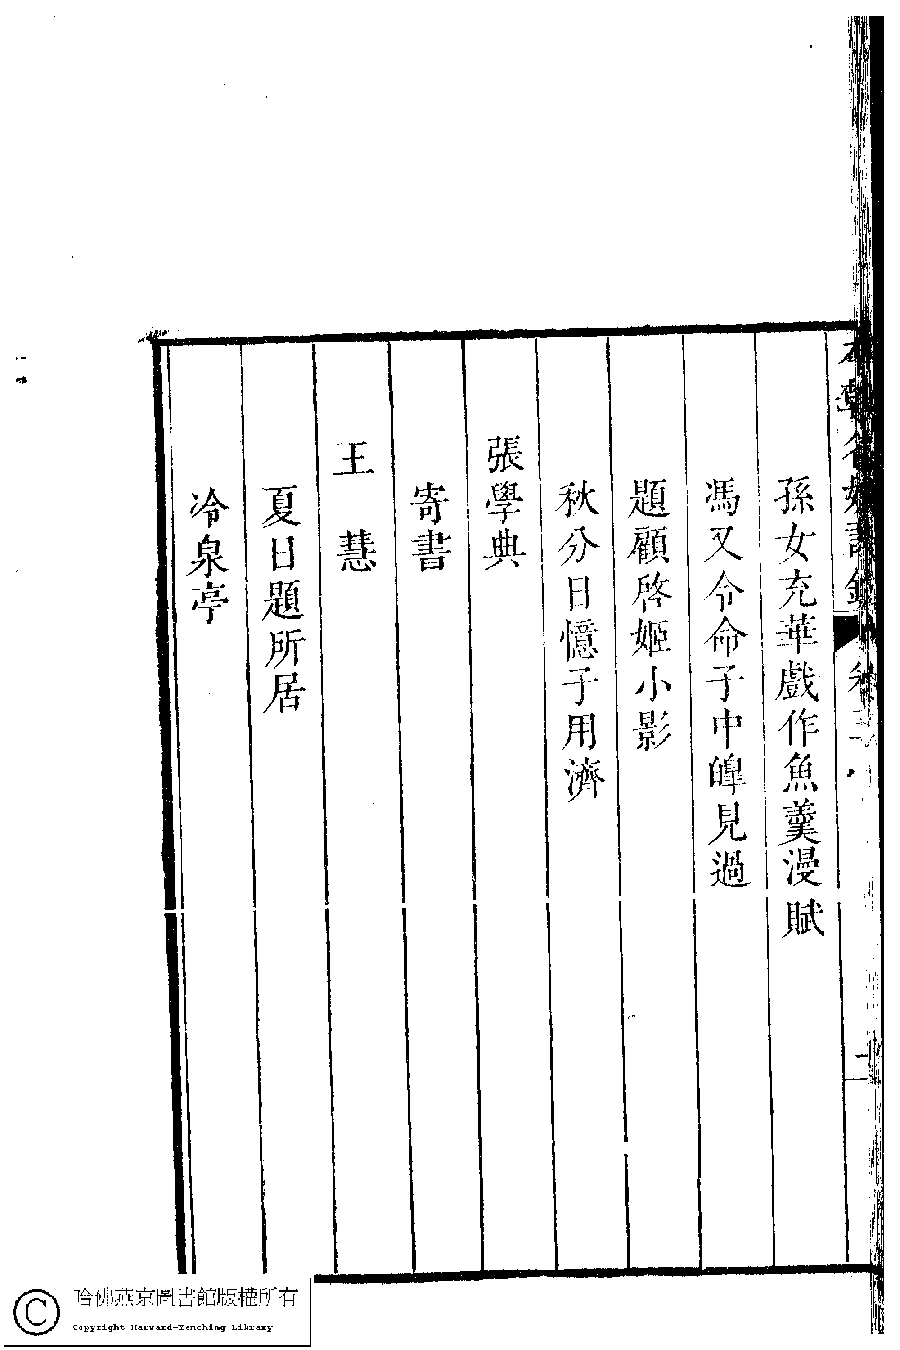 本朝名媛詩鈔 卷三
孫女充華戲作魚羹漫賦
馮又令命子中皡見過
題顧啓姬小影
秋分日憶子用濟
張學典
寄書
王 慧
夏日題所居
冷泉亭
哈佛燕京圖書館版權所有
Copyright Harvard-Yenching Library